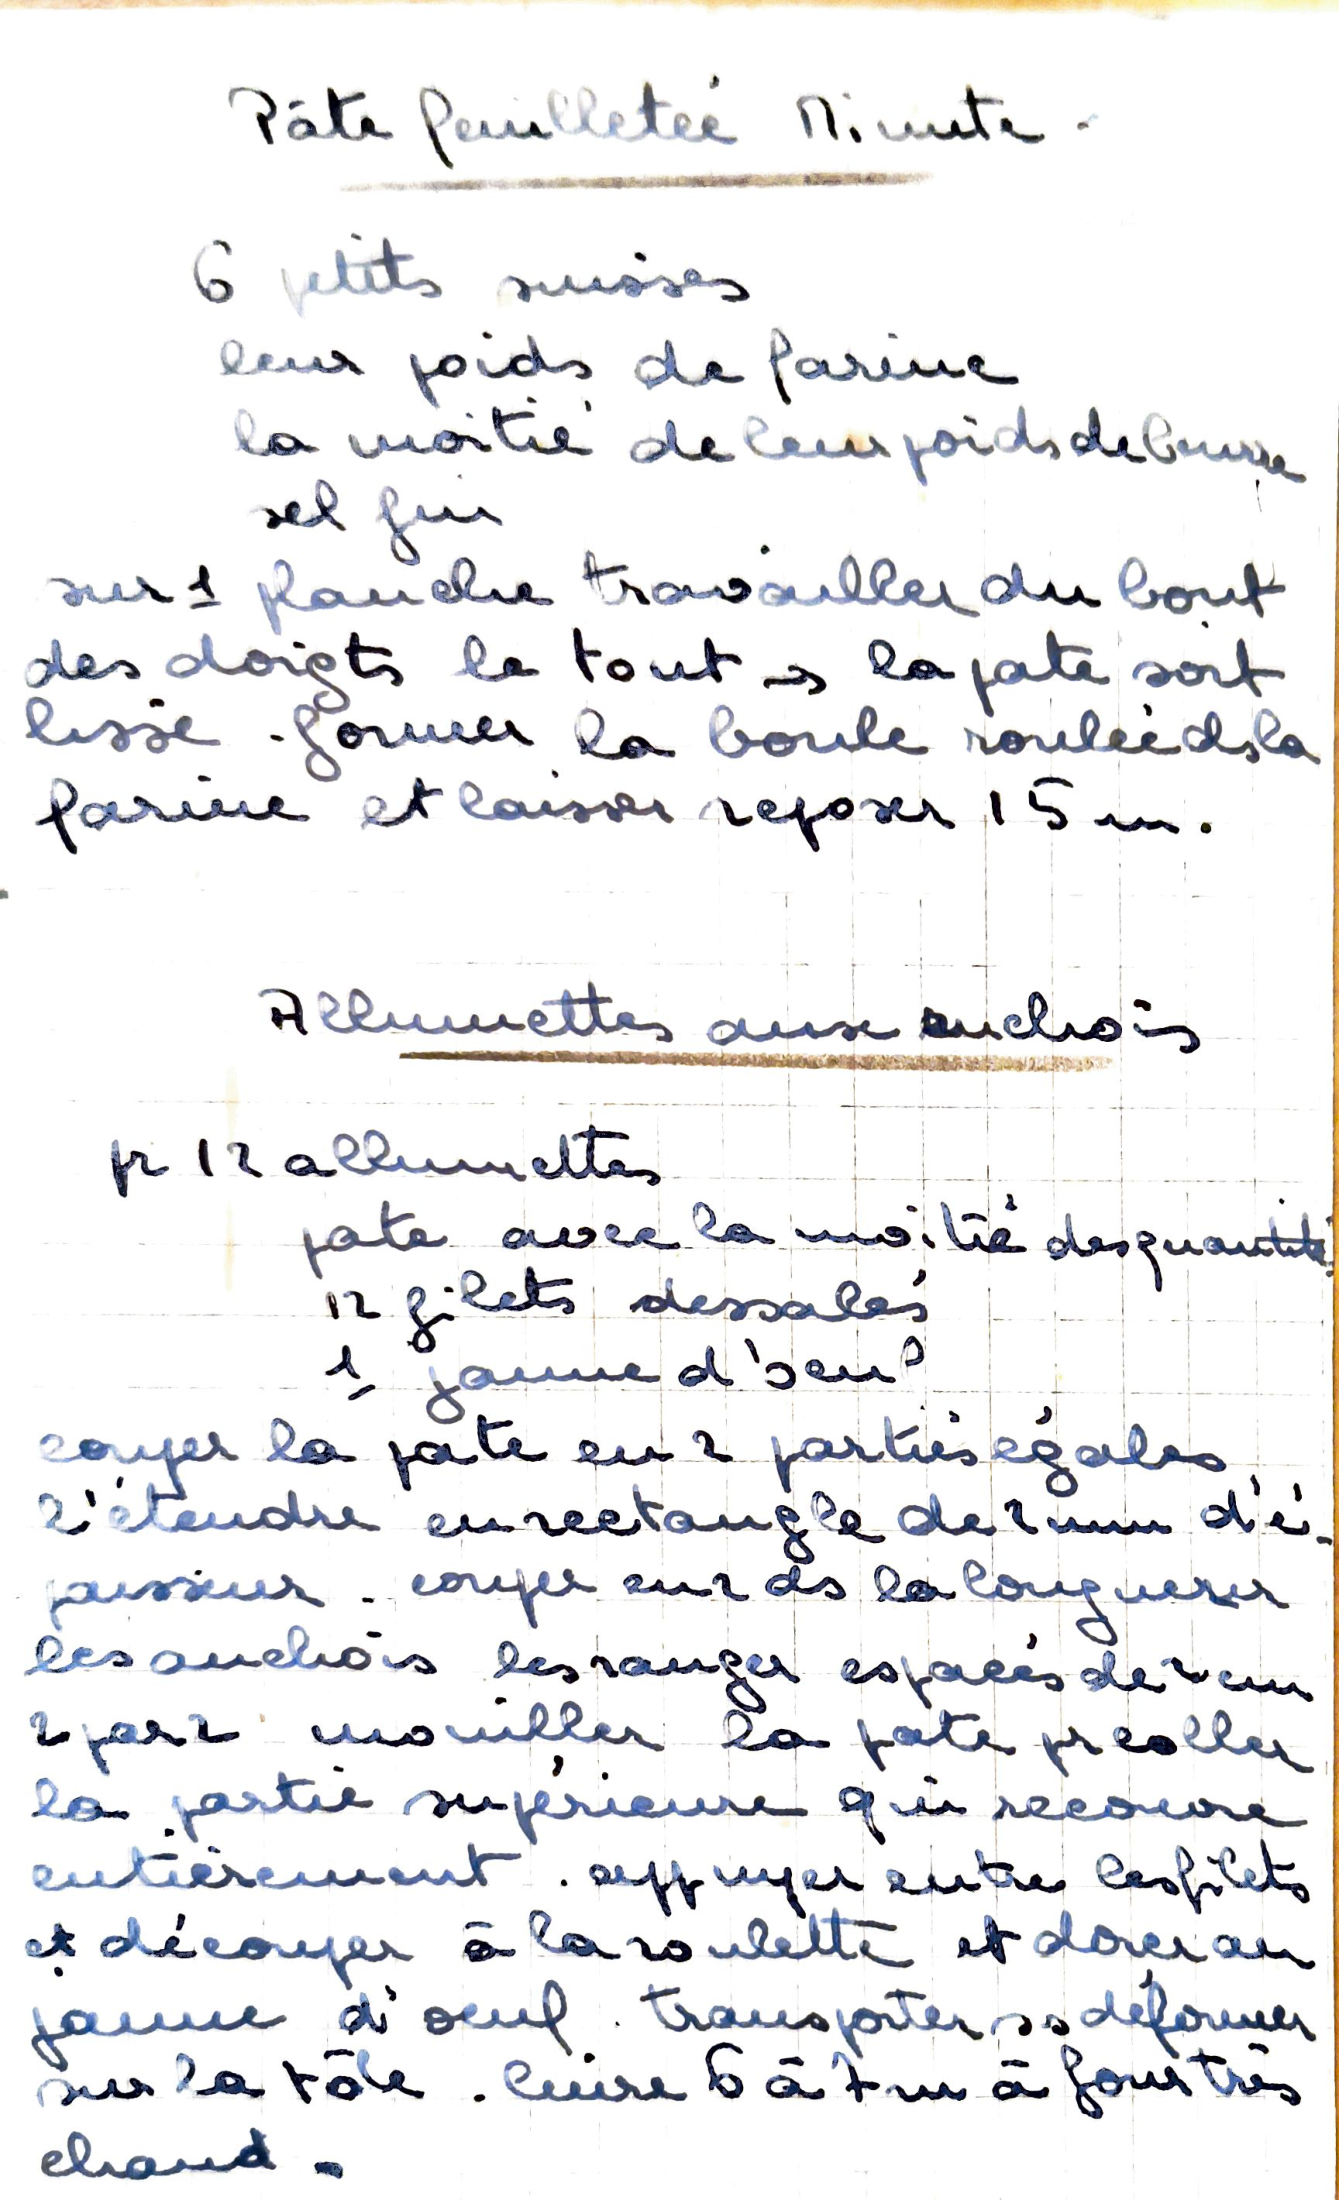 Pâte feuilletée Minute.
6 petits suisses
leur poids de farine
la moitié de leur poids de beurre
sel fin
sur 1 planche travailler du bout
des doigts le tout → la pate soit
lisse. former la boule roulée ds la
farine et laisser reposer 15 m.
Allumettes aux anchois
pr 12 allumettes
pate avec la moitié des quantités
12 filets dessalés
1 jaune d'oeuf
couper la pate en 2 parties égales
l'étendre en rectangle de 2 mm d'é-
paisseur. couper en 2 ds la longueur
les anchois les ranger espacés de 2 cm
2 par 2 mouiller la pate pr coller
la partie supérieure qui recouvre
entièrement. appuyer entre les filets
et découper à la roulette et dorer au
jaune d'oeuf. transporter ss déformer
sur la tôle. Cuire 6 à 7 m à four très
chaud.